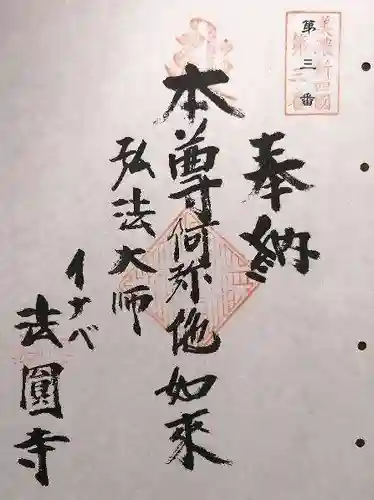 美濃新四国
第三番
奉納
本尊阿弥陀如来
弘法大師
イナベ
法圓寺